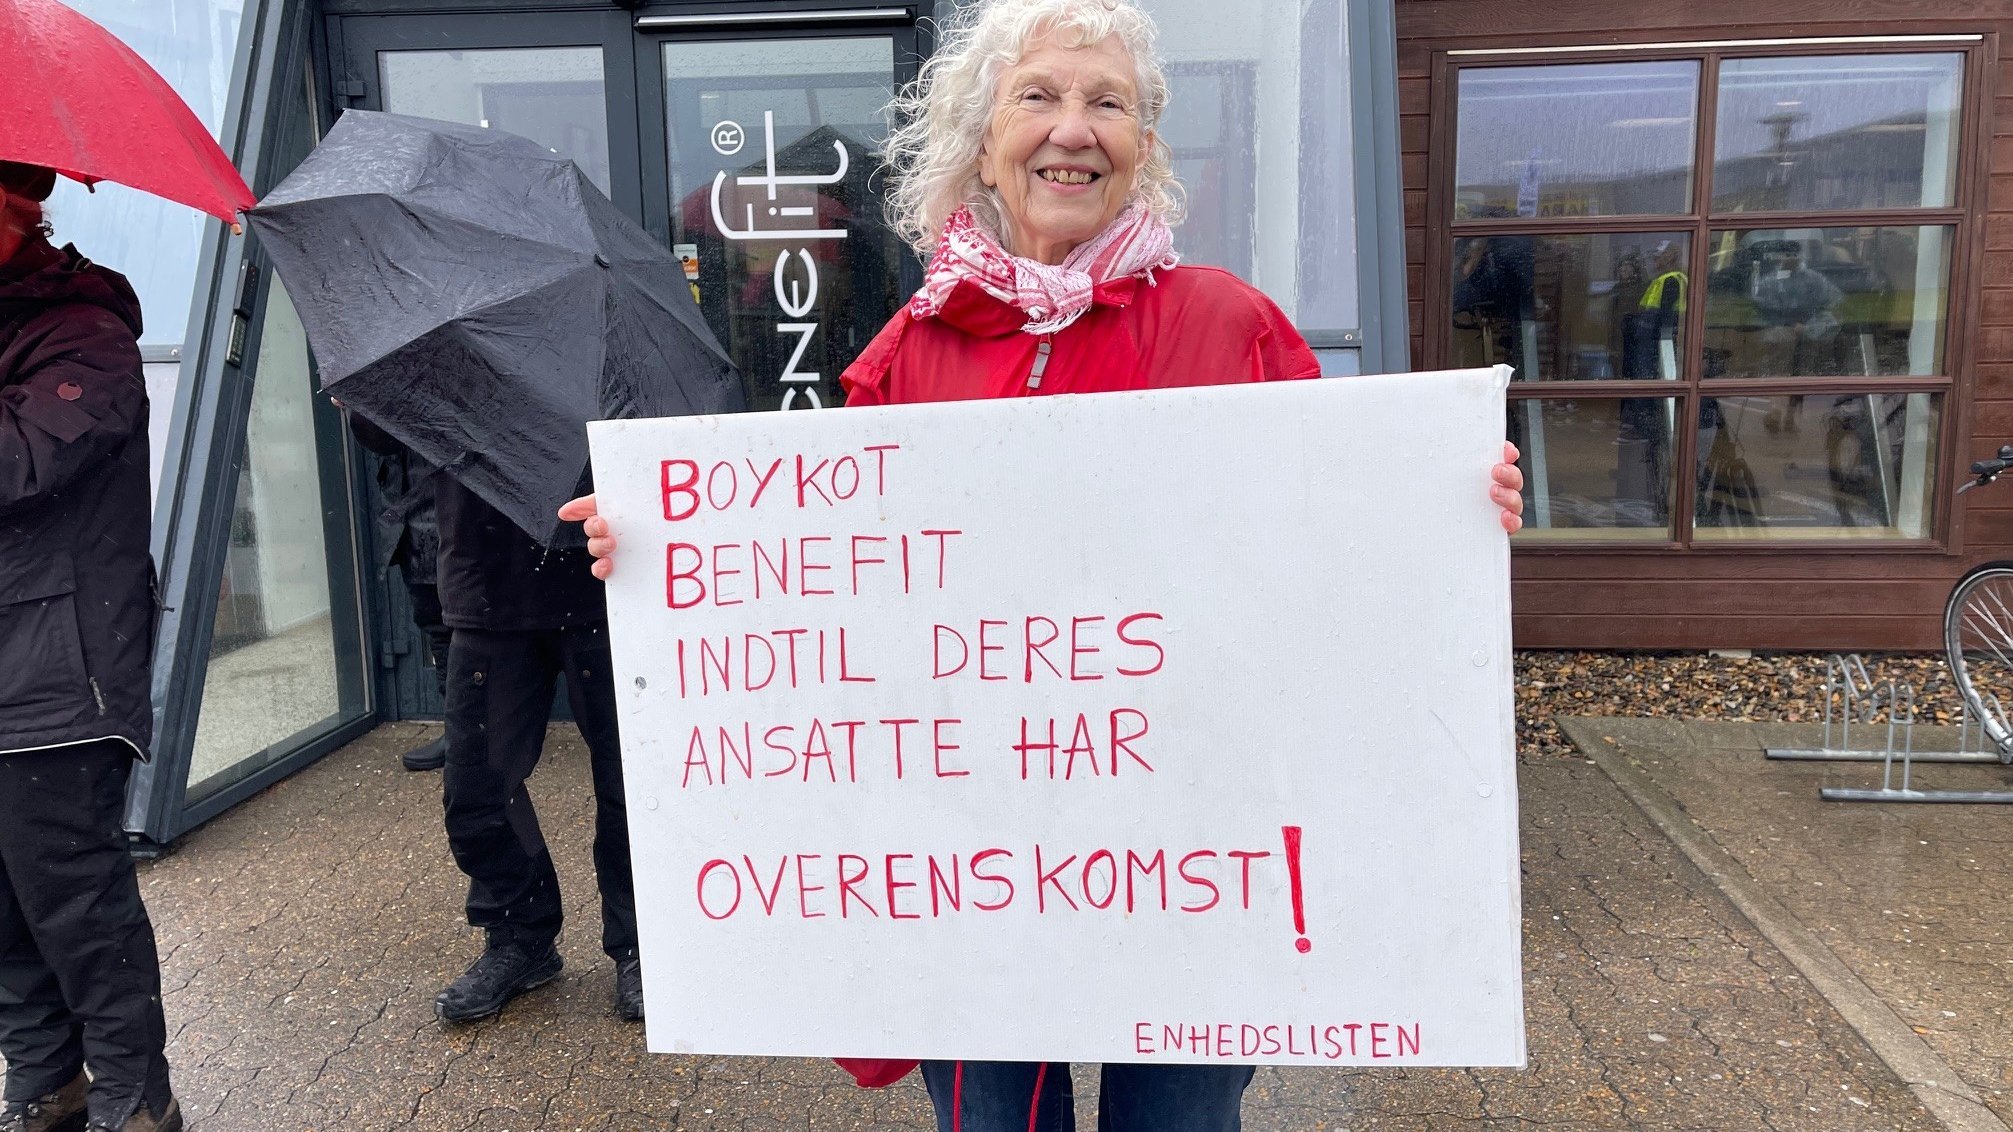 BOYKOT
BENEFIT
INDTIL DERES
ANSATTE HAR
OVERENSKOMST!
ENHEDSLISTEN